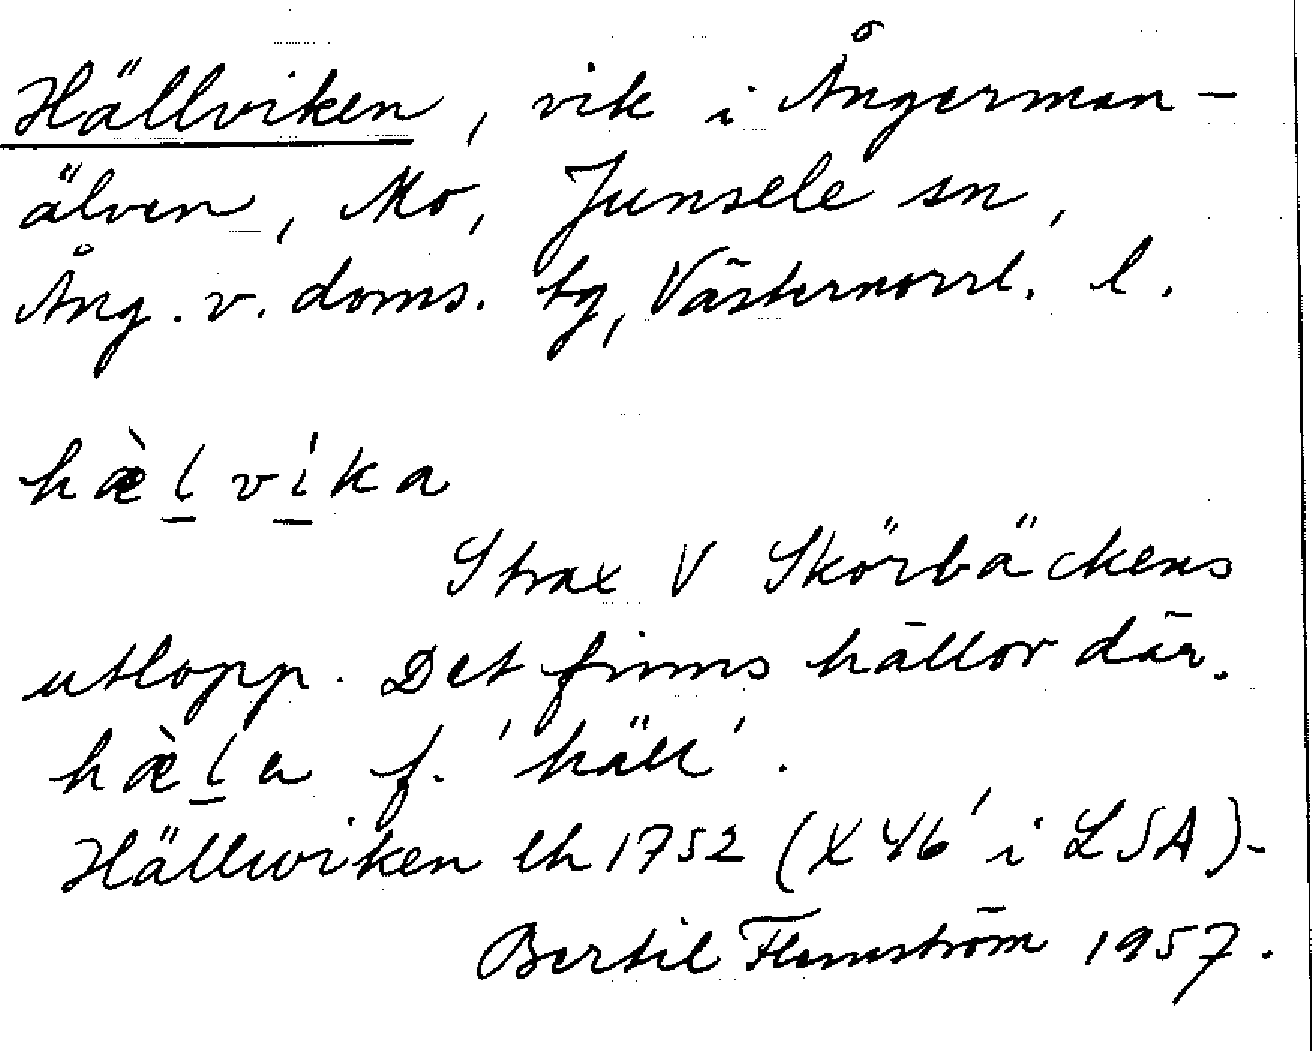 Hällviken, vik i Ångerman-
älven, Mo, Junsele sn,
Ång. v. doms. tg, Västernorrl. l.
hæ̀l̲ví̲ka
Strax V Skörbäckens
utlopp. Det finns hällor där.
hæ̀l̲a f. 'häll'.
Hällwiken lh 1752 (X 46' i LSA).
Bertil Flemström 1957.